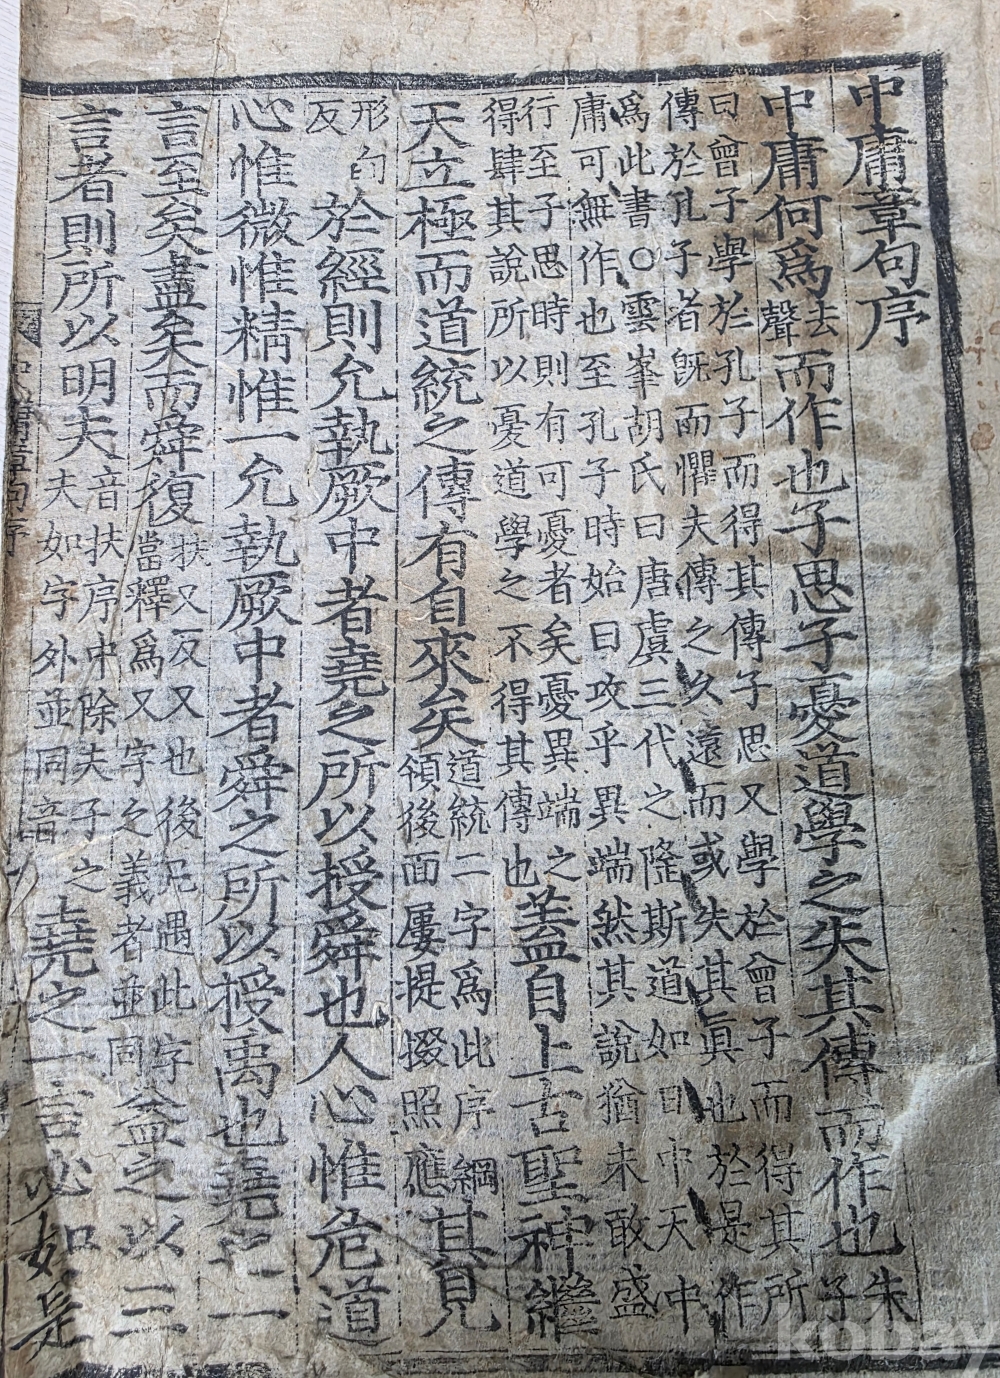 中庸章句序
中庸何爲去聲而作也子思子憂道學之失其傳而作也朱子
曰曾子學於孔子而得其傳子思又學於曾子而得其所
傳於孔子者旣而懼夫傳之久遠而或失其眞也於是作
爲此書○雲峯胡氏曰唐虞三代之隆斯道如日中天中
庸可無作也至孔子時始曰攻乎異端然其說猶未敢盛
行至子思時則有可憂者矣憂異端之
得肆其說所以憂道學之不得其傳也蓋自上古聖神繼
天立極而道統之傳有自來矣道統二字爲此序綱
領後面屢提掇照應其見
形甸反於經則允執厥中者堯之所以授舜也人心惟危道
心惟微惟精惟一允執厥中者舜之所以授禹也堯之一
言至矣盡矣而舜復扶又反又也後凡遇此字
當釋爲又字之義者並同益之以三
言者則所以明夫音扶序中除夫子之
夫如字外並同音堯之一言必如是
中庸章句序
kobay